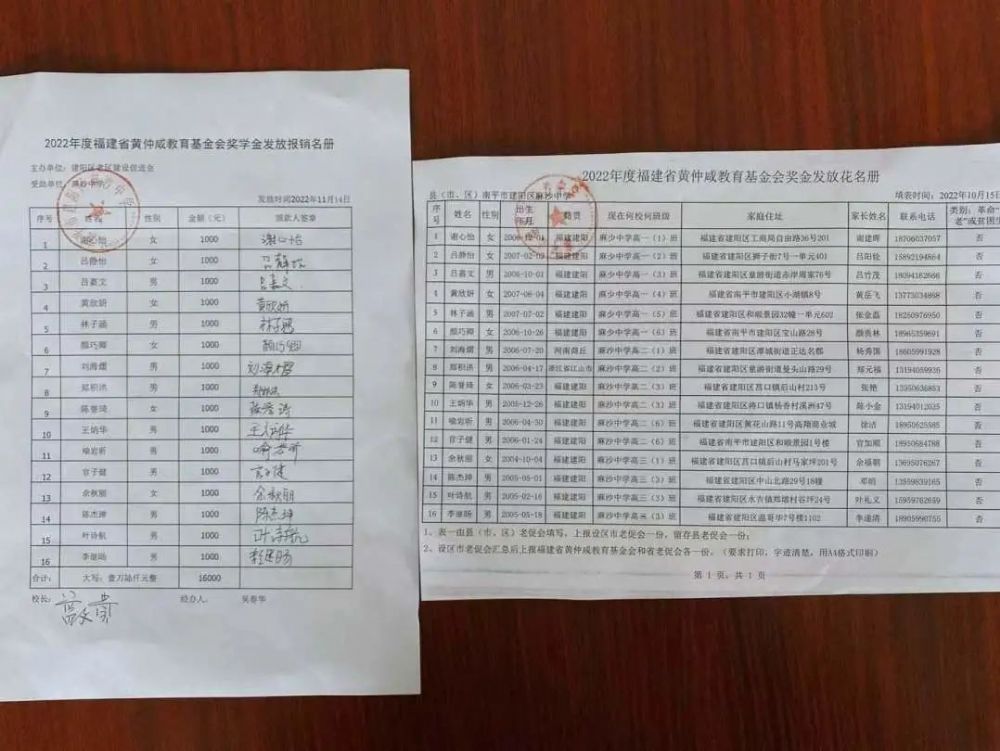 2022年度福建省黄仲咸教育基金会奖学金发放报销名册
主办单位：建阳区老区建设促进会
受助单位：麻沙中学
发放时间2022年11月14日
序号 姓名 性别 金额（元） 领款人签章
1 谢心怡 女 1000 谢心怡
2 吕静怡 女 1000 吕静怡
3 吕嘉文 男 1000 吕嘉文
4 黄欣妍 女 1000 黄欣妍
5 林子涵 男 1000
6 颜巧卿 女 1000 颜巧卿
7 刘海儒 男 1000
8 郑积洪 男 1000
9 陈誉琦 女 1000
10 王炳华 男 1000 王炳华
11 喻宏昕 男 1000
12 官子健 男 1000 官子健
13 余秋丽 女 1000 余秋丽
14 陈杰坤 男 1000 陈杰坤
15 叶诗航 男 1000 叶诗航
16 李继旸 男 1000
合计： 大写：壹万陆仟元整 16000
校长： 经办人： 吴春华
2022年度福建省黄仲咸教育基金会奖金发放花名册
县（市、区）南平市建阳区麻沙中学 填表时间：2022年10月15日
序号 姓名 性别 出生年月 籍贯 现在何校何班级 家庭住址 家长姓名 联系电话 类别：革命
1 谢心怡 女 福建建阳 麻沙中学高一（1）班 福建省建阳区工商局自由路36号201 谢建辉 18706037057 否
2 吕静怡 女 2007-02-02 福建建阳 麻沙中学高一（2）班 福建省建阳区狮子街7号一单元401 15892194864 否
3 吕嘉文 男 2006-10-01 福建建阳 麻沙中学高一（3）班 福建省建阳区童游街道赤岸周家76号 吕竹茂 18094162666 否
4 黄欣妍 女 2007-06-04 福建建阳 麻沙中学高一（4）班 福建省南平市建阳区小湖镇8号 黄岳飞 13775034868 否
5 林子涵 男 2007-07-02 福建建阳 麻沙中学高一（5）班 福建省建阳区和顺景园32幢一单元602 张金磊 18250976950 否
6 颜巧卿 女 2006-10-26 福建建阳 麻沙中学高一（6）班 福建省南平市建阳区宝山路28号 颜贵林 18965359691 否
7 刘海儒 男 2006-07-20 河南商丘 麻沙中学高二（1）班 福建省建阳区潭城街道正达名都 18605991928 否
8 郑积洪 男 2006-04-17 浙江省江山市 麻沙中学高二（2）班 福建省建阳区童游街道曼头山路29号 郑元福 13194059936 否
9 陈誉琦 女 2006-03-23 福建建阳 麻沙中学高二（3）班 福建省建阳区莒口镇后山村213号 张艳 13950636853 否
10 王炳华 男 2005-12-26 福建建阳 麻沙中学高二（3）班 福建省建阳区将口镇杨香村溪洲47号 陈小金 13194012035 否
11 喻宏昕 男 2006-04-30 福建建阳 麻沙中学高二（6）班 福建省建阳区黄花山路11号高翔商业城 徐洁 18950625585 否
12 官子健 男 2006-01-24 福建建阳 麻沙中学高二（6）班 福建省南平市建阳区和顺景园1号楼 官加顺 18950684788 否
13 余秋丽 女 2004-10-04 福建建阳 麻沙中学高三（1）班 福建省建阳区莒口镇后山村马家坪201号 余福朝 13695076267 否
14 陈杰坤 男 2005-02-16 福建建阳 麻沙中学高三（3）班 福建省建阳区中山北路29号18幢 邓娟 13559839165 否
15 叶诗航 男 2005-02-16 福建建阳 麻沙中学高三（3）班 福建省建阳区水吉镇郑墩村谷坪24号 叶礼文 15959762659 否
16 李继旸 男 2005-05-18 福建建阳 麻沙中学高三（3）班 福建省建阳区温哥华7号楼1102 李迪清 18905990755 否
1、表一由县（市、区）老促会填写，上报设区市老促会一份，留存县老促会一份。
2、设区市老促会汇总后上报福建省黄仲咸教育基金会和省老促会各一份。（要求打印，字迹清楚，用A4格式印刷）
第 1 页，共 1 页